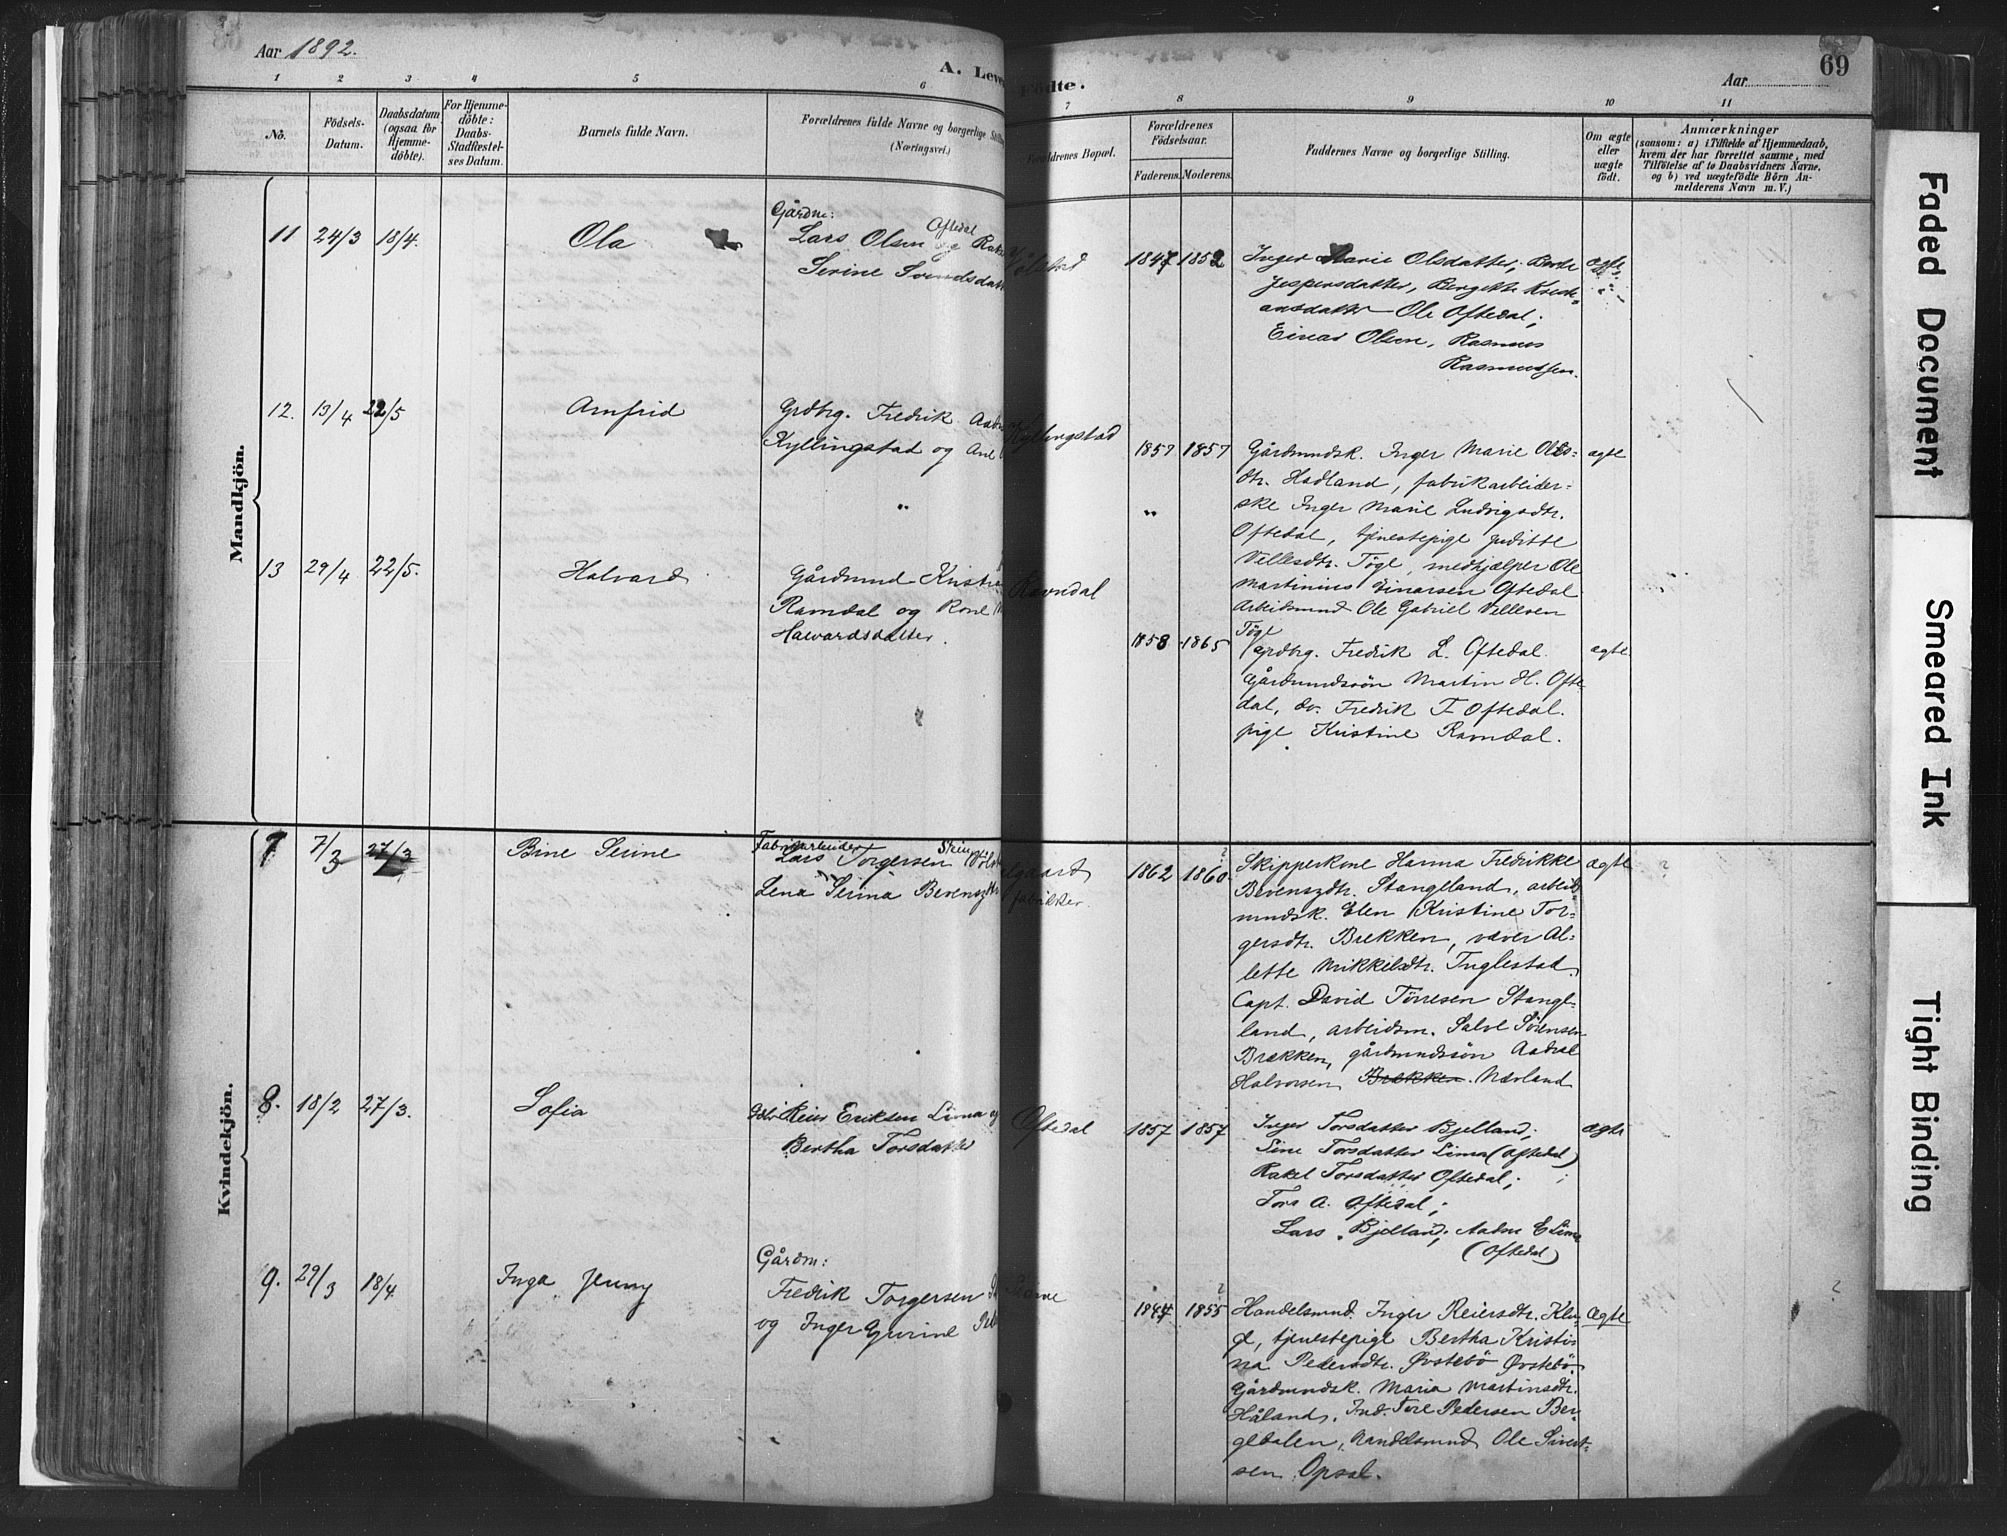 Aar 1892.
A. Leve
Födte.
Aar
69
1 2 3 4 5 6 7 8 9 10 11
No.
Födsels-
Datum.
Daabsdatum
(ogsaa for
Hjemme-
döbte).
For Hjemme-
döbte:
Daabs-
Stadfæstel-
ses Datum.
Barnets fulde Navn.
Forældrenes fulde Navne og borgerlige Stilling
(Næringsvei.)
Forældrenes Bopæl.
Forældrenes
Födselsaar.
Faderens. Moderens.
Faddernes Navne og borgerlige Stilling.
Om ægte
eller
uægte
födt.
Anmærkninger
(saasom: a) i Tilfælde af Hjemmedaab,
hvem der har forrettet samme, med
Tilföielse af to Daabsvidners Navne,
og b) ved uægtefödte Börn An-
melderens Navn m. V.)
Mandkjön.
11 24/3 18/4. Ola
Gårdm:
Lars Olsen Oftedal og Rakel
Serine Svendsdatt
1847 1852
Inger Marie Olsdatter; Berte
Jespersdatter, Bergitte Krist-
ansdatter Ole Oftedal;
Einar Olsen, Rasmus
Rasmussen.
ægte
12. 13/4 22/5 Arnfrid
Grdbrg. Fredrik
Kyllingstad og Ane
Kyllingstad
1857 1857
Gårdmndsk. Inger Marie Ols-
dtr. Hadland, fabrikarbeider-
ske Inger Marie Ludvigsdtr.
Oftedal, tjenestepige Juditte
Vellesdtr. Töge, medhjælper Ole
Martinius Einarsen Oftedal
Arbeidsmnd Ole Gabriel Vellesen
Töge
ægte
13 29/4 22/5. Halvard
Gårdmnd Kristia
Ravndal og
Halvardsdatter.
Ravndal
1858 1865
Grdbrg. Fredrik L. Oftedal
Gårdmndssön Martin H. Ofte
dal, do. Fredrik T Oftedal.
pige Kristine Ravndal.
ægte
Kvindekjön.
7 7/3 27/3 Bine Serine
Fabrikarbeider
Lars Torgersen
Lena Serina Bevensdtr
fabrikker.
1862 1860 ?
Skipperkone Hanna Fredrikke
Bevensdtr. Stangeland, arbeids
mndsk. Elen Kristine Tor-
gersdtr. Brekken, væver Al-
lette Mikkelsdtr. Tuglestad
Capt. David Tönnesen Stange-
land, arbeidsm. Salve Sörensen
Brækken, gårdmndssön Aadsel
Halvorsen Brækken. Nærland
ægte ?
8. 18/2 27/3. Sofia
Reier Eriksen Lima og
Bertha Torsdatter
Oftedal
1857 1857
Inger Torsdatter Bjelland;
Sine Torsdatter Lima (Oftedal)
Rakel Torsdatter Oftedal;
Tore A. Oftedal;
Lars Bjelland, Aadne E Lima
(Oftedal)
ægte
9. 29/3 18/4 Inga Jenny
Gårdm:
Fredrik Torgersen
og Inger Gurine
1844 1855 ?
Handelsmnd. Inger Reiersdtr. Kle
, tjenestepige Bertha Kristi
na Pedersdtr. Östebö Östebö
Gårdmndsk. Maria Martinsdtr.
Håland, Ind. Tore Pedersen Ber-
gedalen, Handelsmnd Ole Sivert-
sen Opsal.
Ægte ?
Faded Document
Smeared Ink
Tight Binding